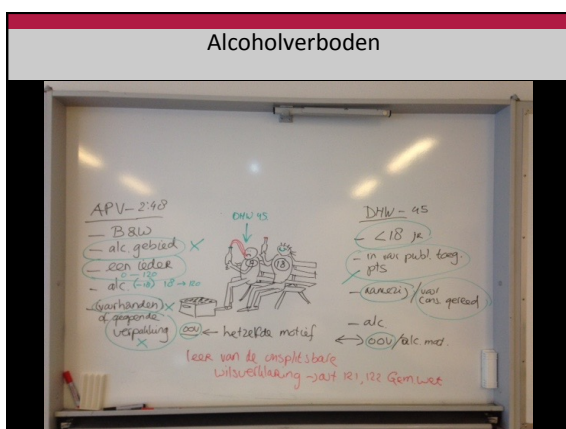 Alcoholverboden
APV - 2:48
- B&W
- alc. gebied
- een ieder
0 - 120
- alc. (-18) 18 → 120
- (voorhanden)
of geopende
verpakking
DHW 45
18
OOV ← hetzelfde motief
DHW - 45
- < 18 jr
- in voor publ. toeg.
pts
- aanwezig / voor
cons. gereed
- alc
↔ OOV / alc mat.
leer van de onsplitsbare
wilsverklaring → art 121, 122 Gemwet